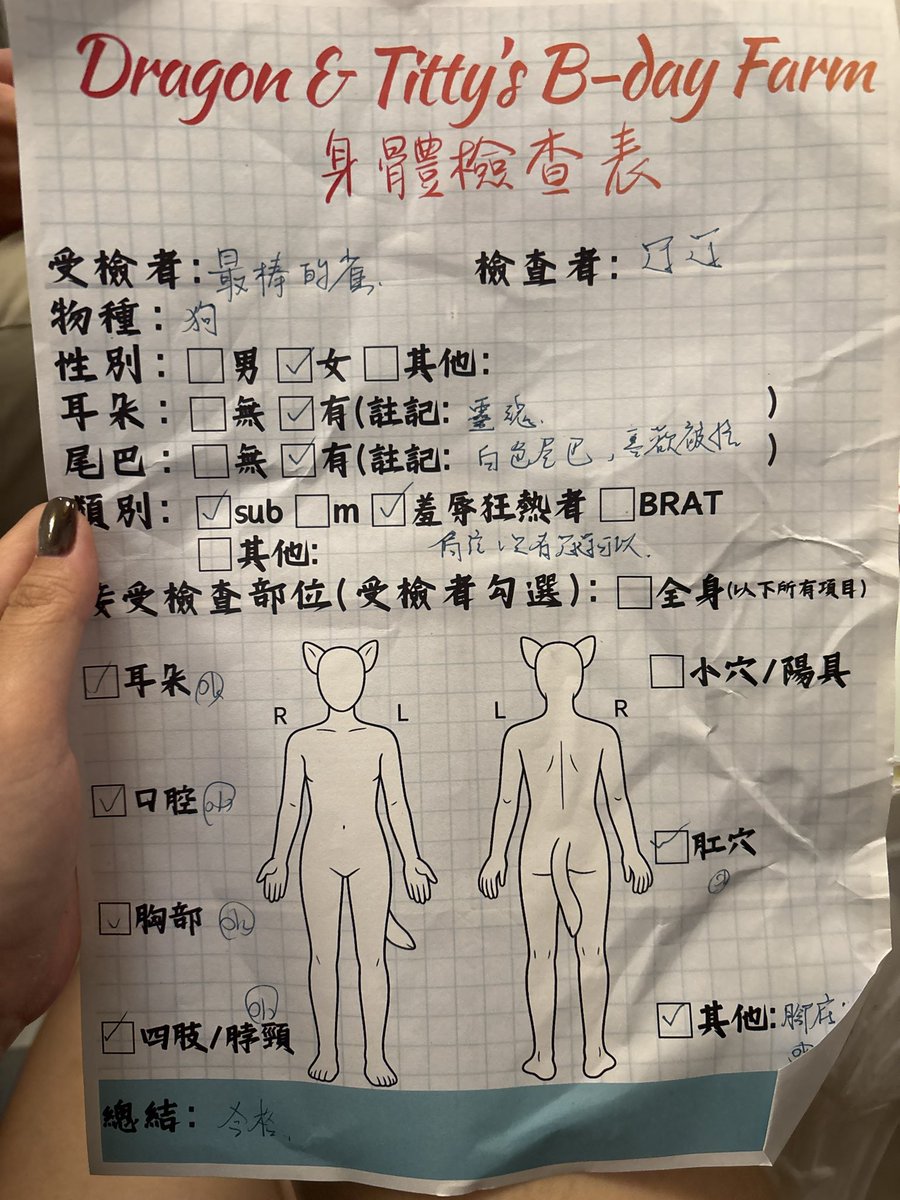 Dragon & Titty's B-day Farm
身體檢查表
受檢者：最棒的雀 檢查者：
物種：狗
性別：男 女 其他：
耳朵：無 有(註記：靈魂 )
尾巴：無 有(註記：白色尾巴，喜歡被搖 )
類別：sub m 羞辱狂熱者 BRAT
其他：
接受檢查部位(受檢者勾選)：全身(以下所有項目)
耳朵 ok
小穴/陽具
R L L R
口腔 ok
肛穴
胸部 ok
四肢/脖頸 ok
其他：腳底 ok
總結：合格